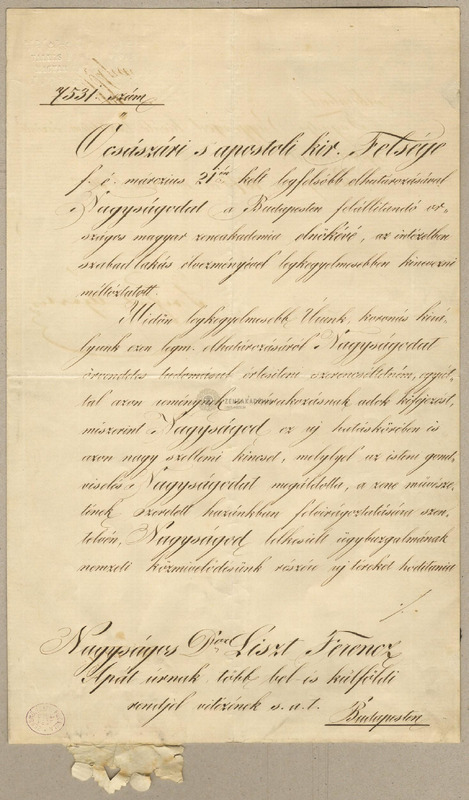 7531. szám
Ő császári s apostoli kir. Felsége
f. é. márczius 21-én kelt legfelsőbb elhatározásával
Nagyságodat a Budapesten felállítandó or-
szágos magyar zeneakademia elnökévé, az intézetben
szabad lakás élvezményével legkegyelmesebben kinevezni
méltóztatott.
Midőn legkegyelmesebb Urunk, koronás kirá-
lyunk ezen legm. elhatározásáról Nagyságodat
örvendetes tudomásul értesíteni szerencséltetném, egyút-
tal azon reménynek s várakozásnak adok kifejezést,
miszerint Nagyságod ez új hatáskörében is
azon nagy szellemi kincset, melylyel az isteni gond-
viselés Nagyságodat megáldotta, a zene művésze-
tének szeretett hazánkban felvirágoztatására szen-
telvén, Nagyságod lelkesült ügybuzgalmának
nemzeti közművelődésünk részére új téreket hódítania
./.
Nagyságos Liszt Ferencz
Apát úrnak, több bel- és külföldi
rendjel vitézének s. a. t.
Budapesten